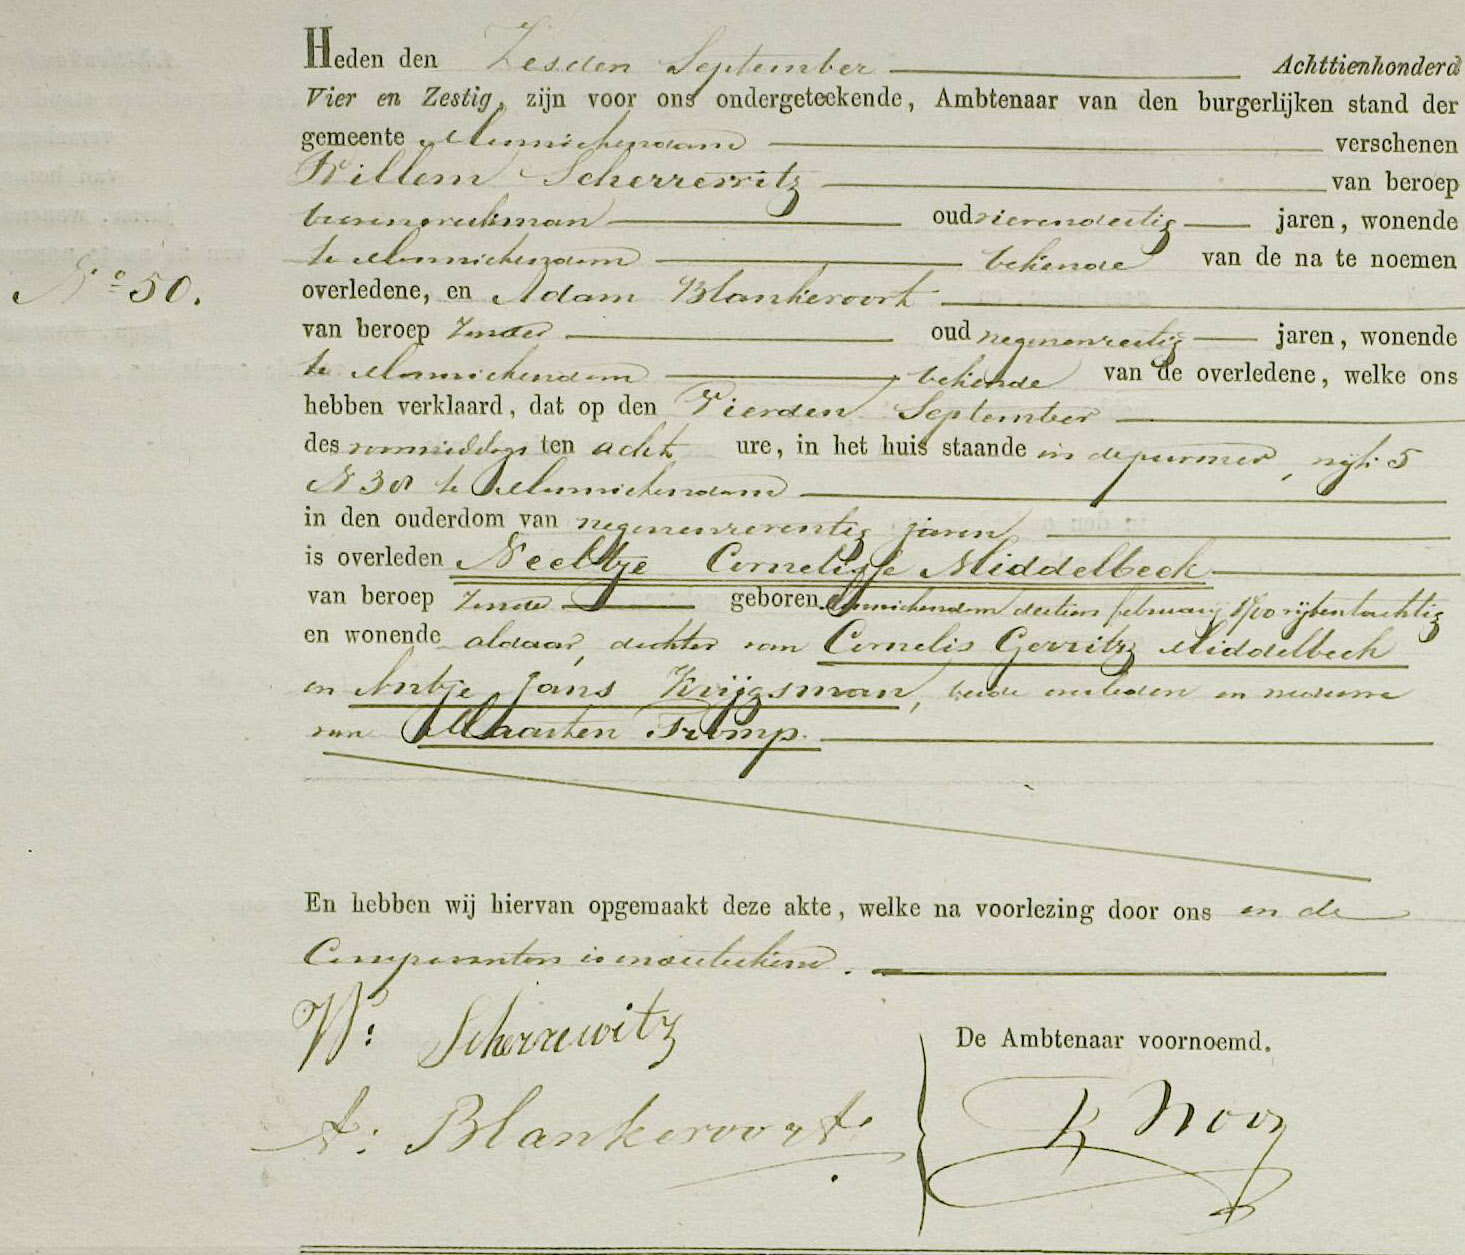 Heden den Zesden September Achttienhonderd
Vier en Zestig, zijn voor ons ondergeteekende, Ambtenaar van den burgerlijken stand der
gemeente Monnickendam verschenen
Willem Scherrewitz van beroep
oud vierendertig jaren, wonende
te Monnickendam bekende van de na te noemen
No 50. overledene, en Adam Blankevoort
van beroep zonder oud jaren, wonende
te Monnickendam, bekende van de overledene, welke ons
hebben verklaard, dat op den Vierden September
des voormiddags ten acht ure, in het huis staande in de purmer, wijk 5
N 30 te Monnickendam
in den ouderdom van negenenzeventig jaren
is overleden Neeltje Cornelisse Middelbeek
van beroep zonder geboren Monnickendam dertien februarij 1700 vijfentachtig
en wonende aldaar, dochter van Cornelis Gerritsz Middelbeek
en Antje Jans Krijgsman, beide overleden en weduwe
van Maarten Tromp.
En hebben wij hiervan opgemaakt deze akte, welke na voorlezing door ons en de
Comparanten is onderteekend.
W: Scherrewitz
De Ambtenaar voornoemd.
A: Blankevoort